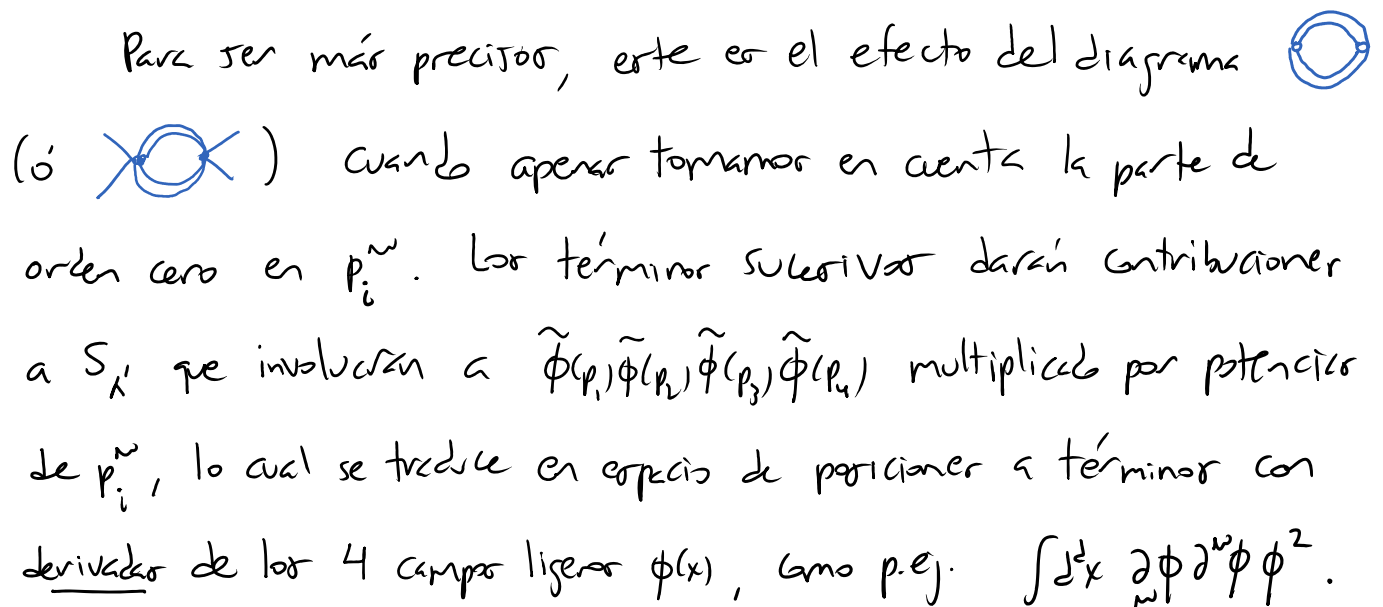 Para ser más precisos, este es el efecto del diagrama
(ó ) cuando apenas tomamos en cuenta la parte de
orden cero en p_i^μ. Los términos sucesivos darán contribuciones
a S_Λ' que involucran a φ̃(p₁)φ̃(p₂)φ̃(p₃)φ̃(p₄) multiplicado por potencias
de p_i^μ, lo cual se traduce en espacio de posiciones a términos con
derivadas de los 4 campos ligeros φ(x), como p.ej. ∫d^dx ∂_μφ∂^μφ φ².